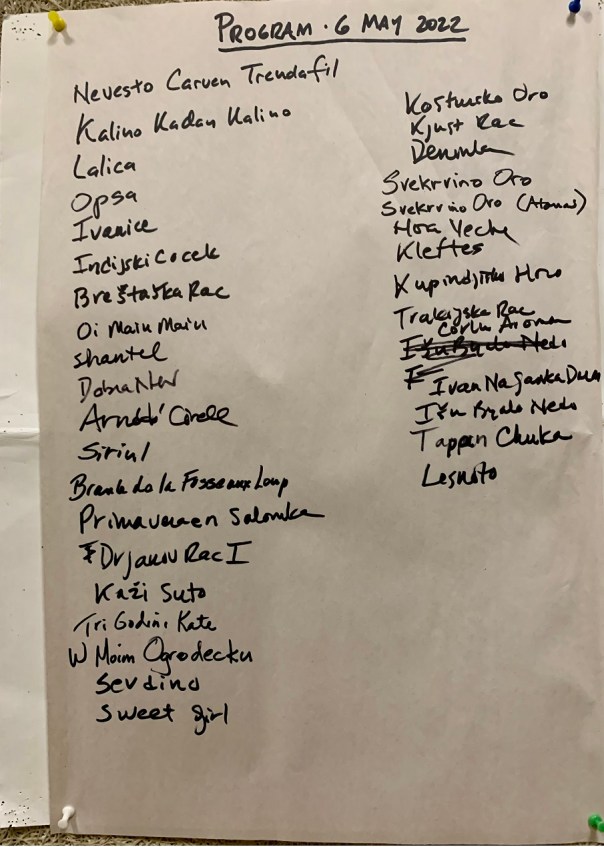 PROGRAM · 6 MAY 2022
Nevesto Carven Trendafil
Kalino Kadan Kalino
Lalica
Opsa
Ivanice
Indijski Cocek
Breštaška Rac
Oi Main Main
Shantel
Dobra Nev
Arnold's Circle
Siriul
Branle de la Fosse aux Loup
Primavera en Salonika
Drjanov Rac I
Kaži Suto
Tri Godini Kate
W Moim Ogrodecku
Sevdino
Sweet Girl
Kostursko Oro
Kjust Rac
Svekrvino Oro
Svekrvino Oro (Atanas)
Hora Veche
Kleftes
Kupindjisko Horo
Trakijska Rac
Corlu
Ivan Na Janka Duma
Ižu Bydo Nedo
Tappan Chuka
Lesnoto